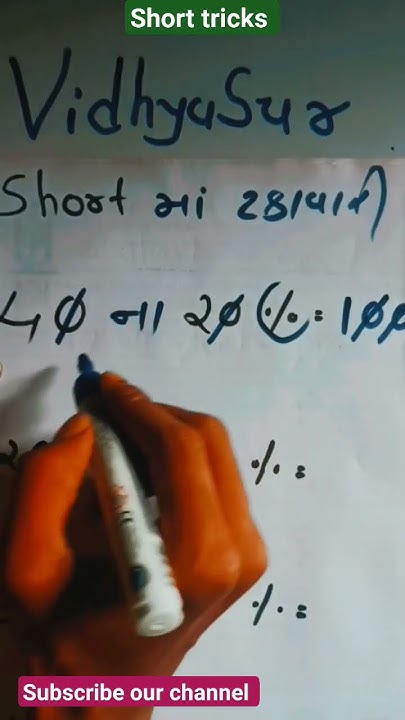 Short tricks
VidhyaSur
Short માં ટકાવારી
૫૦ ના ૨૦ % = 100
% =
% =
Subscribe our channel